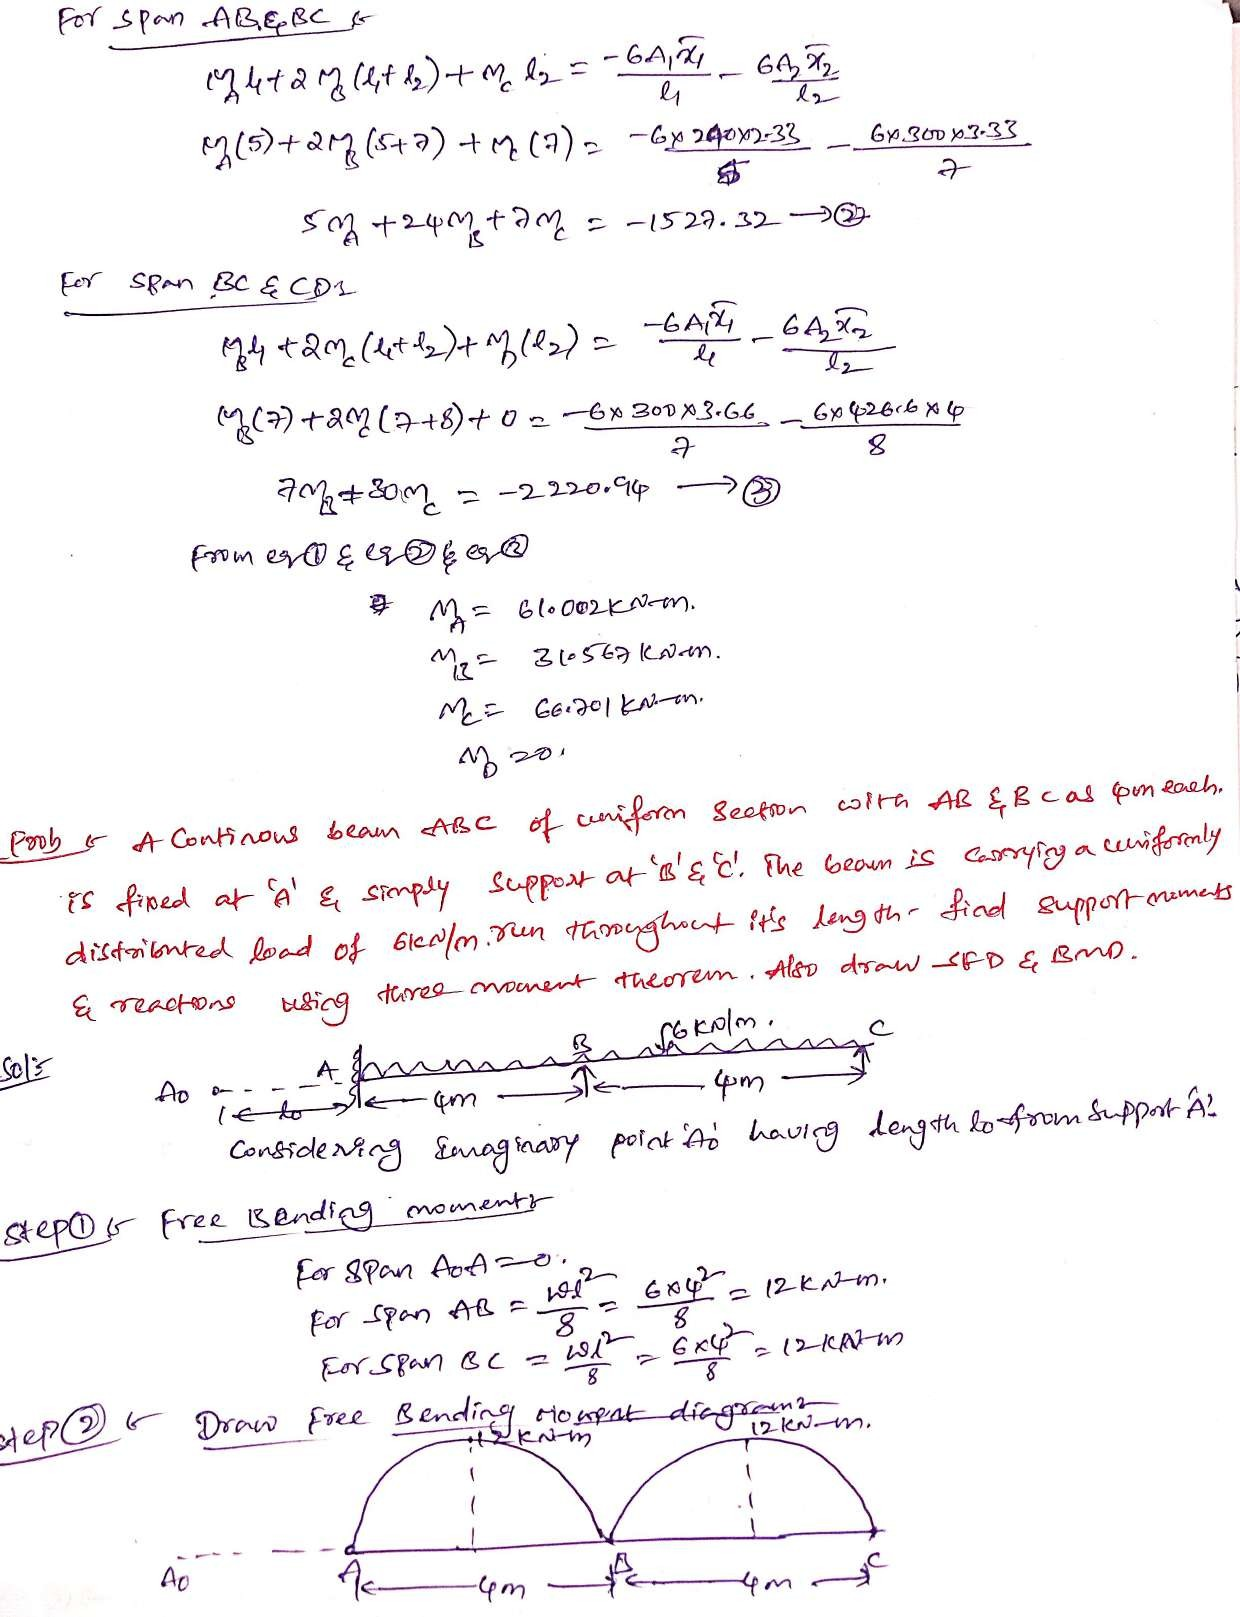 For span AB & BC :-
MA l1 + 2 MB (l1 + l2) + MC l2 = -6A1x̄1/l1 - 6A2x̄2/l2
MA (5) + 2MB (5+7) + MC (7) = -6×240×2.33/5 - 6×300×3.33/7
5MA + 24MB + 7MC = -1527.32 → ②
For span BC & CD :-
MB l1 + 2MC (l1 + l2) + MD (l2) = -6A1x̄1/l1 - 6A2x̄2/l2
MB (7) + 2MC (7+8) + 0 = -6×300×3.66/7 - 6×426.6×4/8
7MB + 30MC = -2220.94 → ③
From eq ① & eq ② & eq ③
MA = 61.002 KN-m.
MB = 31.567 KN-m.
MC = 66.701 KN-m.
MD = 0.
Prob :- A Continous beam ABC of uniform Section with AB & BC as 4m each.
is fixed at 'A' & simply support at 'B' & 'C'. The beam is carrying a uniformly
distributed load of 6KN/m. run throughout it's length. find support moments
& reactions using three moment theorem. Also draw SFD & BMD.
Sol:-
A B 6 KN/m. C
A0 l0 4m 4m
Considering Imaginary point 'A0' having length l0 from Support 'A'.
Step ① :- Free Bending moments
For span A0A = 0.
For span AB = wl²/8 = 6×4²/8 = 12 KN-m.
For Span BC = wl²/8 = 6×4²/8 = 12 KN-m
Step ② :- Draw free Bending Moment diagram:
12 KN-m 12 KN-m.
A0 A B C
4m 4m